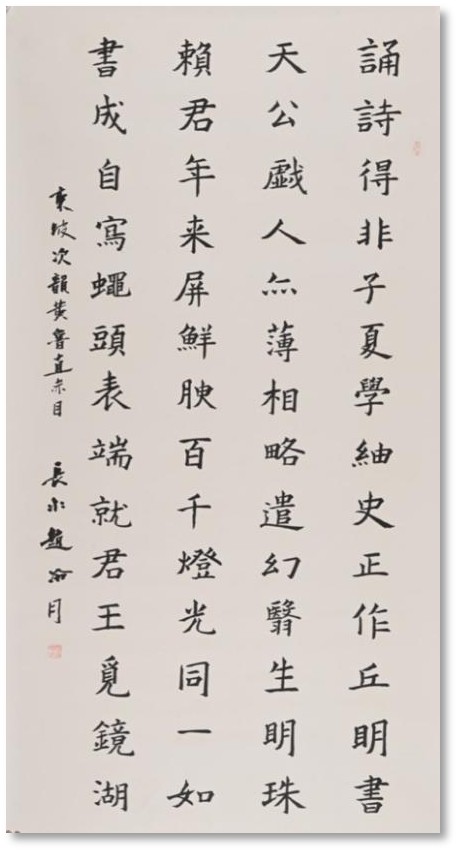 誦詩得非子夏學紬史正作丘明書
天公戲人亦薄相略遣幻翳生明珠
賴君年来屏鮮腴百千燈光同一如
書成自寫蠅頭表端就君王覓鏡湖
東坡次韻黄魯直赤目 長水趙冷月